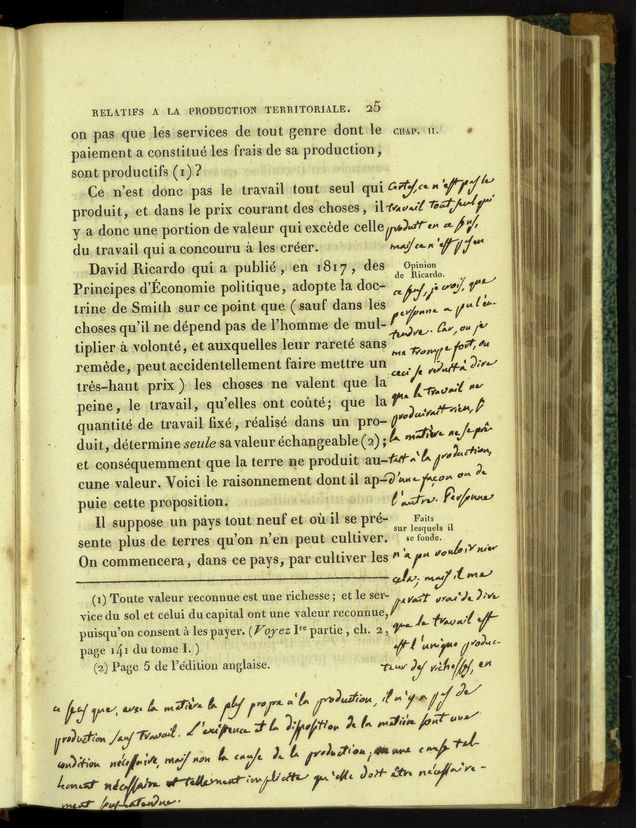 RELATIFS A LA PRODUCTION TERRITORIALE. 25
on pas que les services de tout genre dont le
paiement a constitué les frais de sa production,
sont productifs (1)?
Ce n'est donc pas le travail tout seul qui
produit, et dans le prix courant des choses, il
y a donc une portion de valeur qui excède celle
du travail qui a concouru à les créer.
David Ricardo qui a publié, en 1817, des
Principes d'Économie politique, adopte la doc-
trine de Smith sur ce point que (sauf dans les
choses qu'il ne dépend pas de l'homme de mul-
tiplier à volonté, et auxquelles leur rareté sans
remède, peut accidentellement faire mettre un
très-haut prix) les choses ne valent que la
peine, le travail, qu'elles ont coûté; que la
quantité de travail fixé, réalisé dans un pro-
duit, détermine seule sa valeur échangeable (2);
et conséquemment que la terre ne produit au-
cune valeur. Voici le raisonnement dont il ap-
puie cette proposition.
Il suppose un pays tout neuf et où il se pré-
sente plus de terres qu'on n'en peut cultiver.
On commencera, dans ce pays, par cultiver les
(1) Toute valeur reconnue est une richesse; et le ser-
vice du sol et celui du capital ont une valeur reconnue,
puisqu'on consent à les payer. (Voyez Ire partie, ch. 2,
page 141 du tome I.)
(2) Page 5 de l'édition anglaise.
CHAP. II.
Certes, ce n'est pas le
travail tout seul qui
produit en ce sens,
mais ce n'est pas en
Opinion
de Ricardo.
ce sens, je crois, que
personne a pu l'en-
tendre. Car, ou je
me trompe fort, ou
ceci se réduit à dire
que le travail ne
produirait rien, si
la matière ne se prê-
tait à la production,
d'une façon ou de
l'autre. Personne
Faits
sur lesquels il
se fonde.
n'a pu vouloir nier
cela; mais il me
parait vrai de dire
que le travail est
est l'unique produc-
teur des richesses, en
ce sens que, avec la matière la plus propre à la production, il n'y a pas de
production sans travail. L'existence et la disposition de la matière sont une
condition nécessaire, mais non la cause de la production; une cause tel-
lement nécessaire et tellement implicite qu'elle doit être nécessaire-
ment sous-entendue.